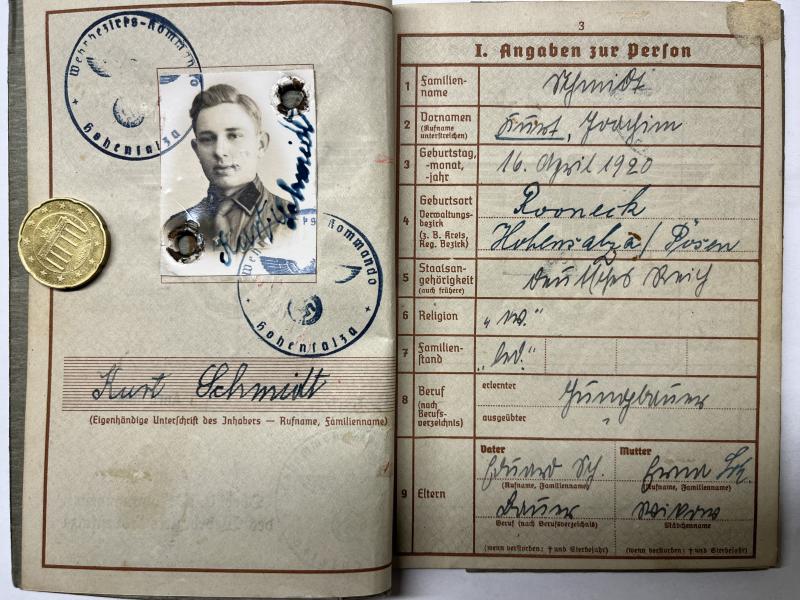 Wehrbezirks-Kommando
Hohensalza
Kurt Schmidt
Kommando
Hohensalza
Kurt Schmidt
(Eigenhändige Unterschrift des Inhabers — Rufname, Familienname)
3
I. Angaben zur Person
1 Familien-
name
Schmidt
2 Vornamen
(Rufname
unterstreichen)
Kurt, Joachim
3 Geburtstag,
-monat,
-jahr
16. April 1920
4 Geburtsort
Verwaltungs-
bezirk
(z. B. Kreis,
Reg. Bezirk)
Rooneck
Hohensalza / Posen
5 Staatsan-
gehörigkeit
(auch frühere)
Deutsches Reich
6 Religion
"ev."
7 Familien-
stand
"led."
8 Beruf
(nach
Berufs-
verzeichnis)
erlernter
Jungbauer
ausgeübter
"
9 Eltern
Vater
Eduard Sch.
(Rufname, Familienname)
Bauer
Beruf (nach Berufsverzeichnis)
(wenn verstorben: † und Sterbejahr)
Mutter
Erna
(Rufname, Familienname)
Mädchenname
(wenn verstorben: † und Sterbejahr)